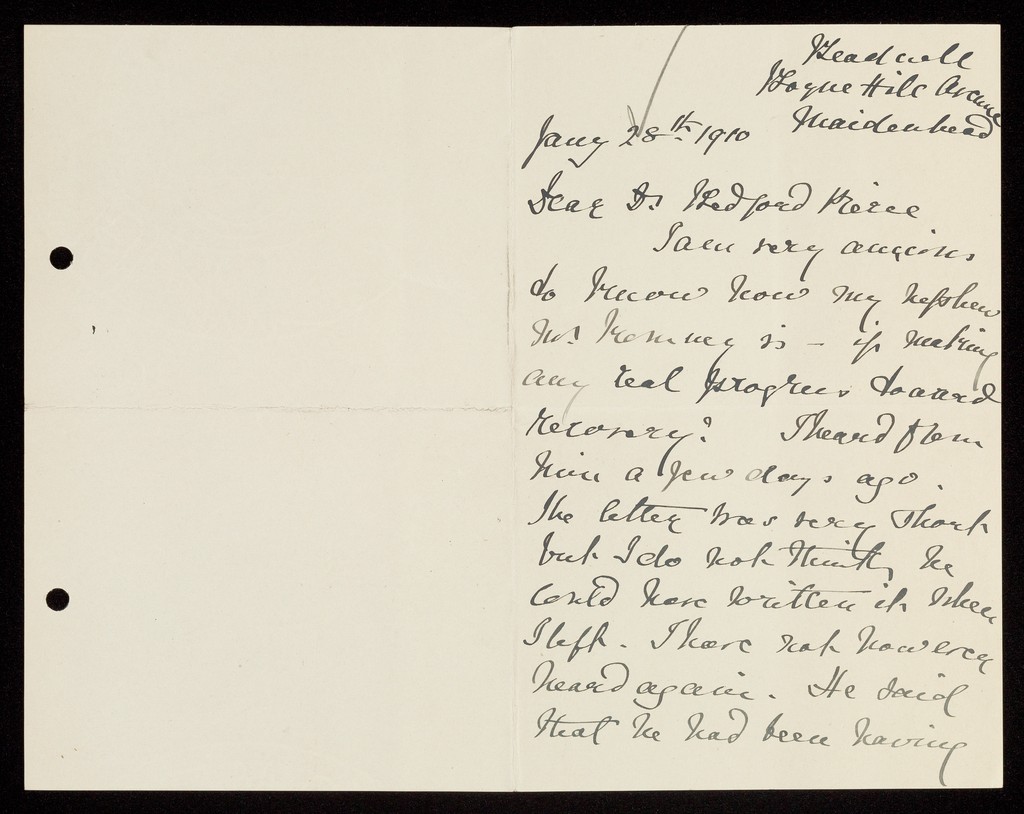 Boyne Hill Avenue
Maidenhead
Jany 28th. 1910
Dear Dr Bedford Pierce
I am very anxious
to know how my nephew
Mr is - if making
any real progress toward
recovery? I heard from
him a few days ago.
The letter was very short
but I do not think he
could have written it when
I left. I have not however
heard again. He said
that he had been having